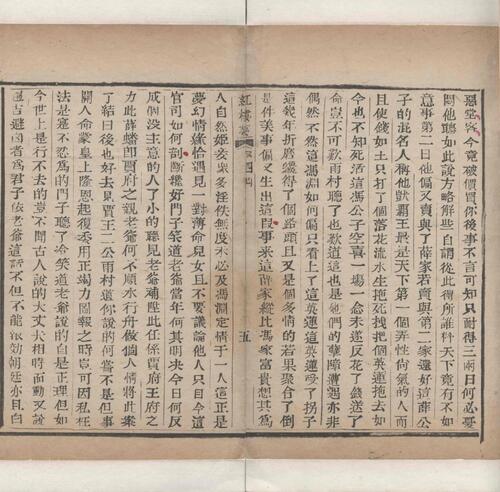 惡堂客今竟破價買你後事不言可知只耐得三兩日何必憂
悶他聽如此說方略解些自謂從此得所誰料天下竟有不如
意事第二日他偏又賣與了薛家若賣與第二家還好這薛公
子的混名人稱他獃霸王最是天下第一個弄性尚氣的人而
且使錢如土只打了個落花流水生拖死拽把個英蓮拖去如
今也不知死活這馮公子空喜一場一念未遂反花了錢送了
命豈不可歎雨村聽了也歎道這也是他們的孽障遭遇亦非
偶然不然這馮淵如何偏只看上了這英蓮這英蓮受了拐子
這幾年折磨纔得了個路頭且又是個多情的若果聚合了倒
是件美事偏又生出這段事來這薛家縱比馮家富貴想其爲
紅樓夢 第四回 五
人自然姬妾衆多淫佚無度未必及馮淵定情于一人這正是
夢幻情緣恰遇見一對薄命兒女且不要議論他人只目今這
官司如何剖斷纔好門子笑道老爺當年何其明決今日何反
成個沒主意的人了小的聽見老爺補陞此任係賈府王府之
力此薛蟠即賈府之親老爺何不順水行舟做個人情將此案
了結日後也好去見賈王二公雨村道你說的何嘗不是但事
關人命蒙皇上隆恩起復委用正竭力圖報之時豈可因私枉
法是寔不忍爲的門子聽了冷笑道老爺說的自是正理但如
今世上是行不去的豈不聞古人說的大丈夫相時而動又說
趨吉避凶者爲君子依老爺這話不但不能報効朝廷亦且自